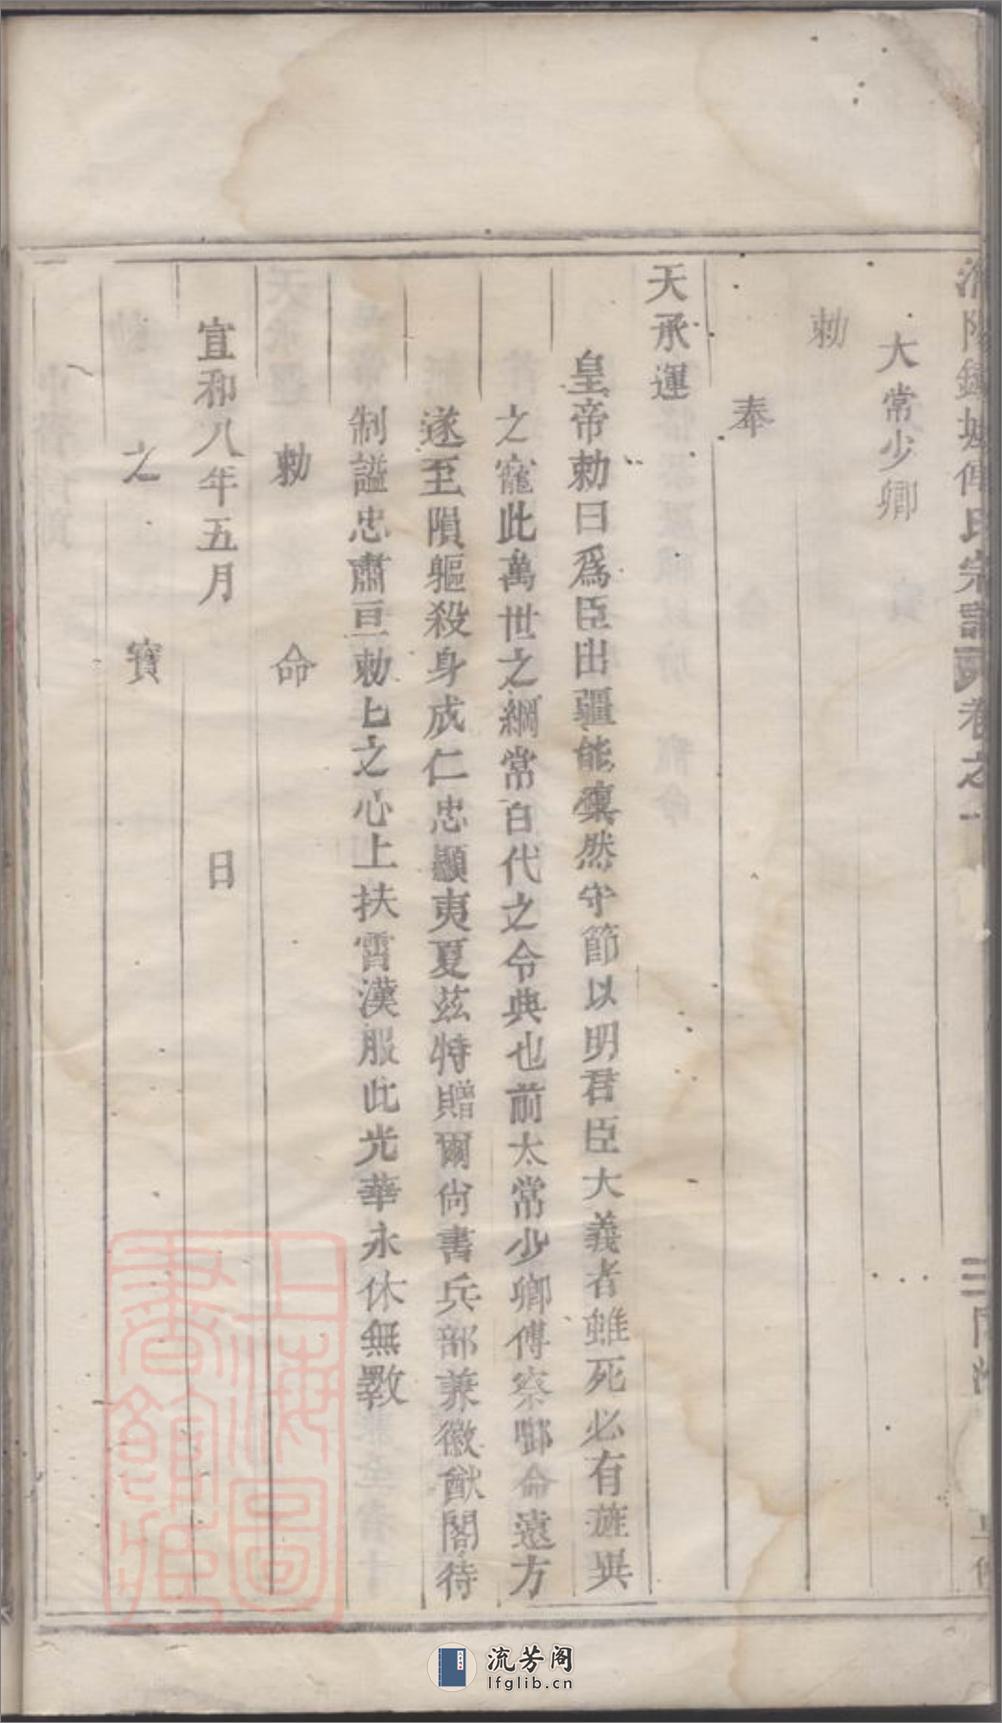 大常少卿
勅
奉
天承運
皇帝勅曰爲臣出疆能凜然守節以明君臣大義者雖死必有旌異
之寵此萬世之綱常百代之令典也前太常少卿傅察啣命遠方
遂至隕軀殺身成仁忠顯夷夏茲特贈爾尙書兵部兼徽猷閣待
制謚忠肅亘勅匕之心上扶霄漢服此光華永休無斁
勅命
宣和八年五月 日
之寶
陽鎮 傅氏宗譜 卷之一
上海圖書館藏
流芳阁
lfglib.cn